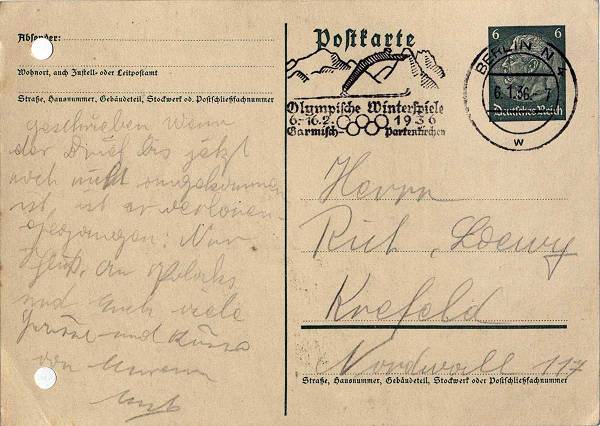 Absender:
Wohnort, auch Zustell- oder Leitpostamt
Straße, Hausnummer, Gebäudeteil, Stockwerk od. Postschließfachnummer
geschrieben. Wenn
der Brief bis jetzt
noch nicht angekommen
ist, ist er verloren-
gegangen. Nur
Gruß. An
und Euch viele
Grüsse und Küsse
von
Postkarte
Olympische Winterspiele
6.-16.2. 1936
Garmisch Partenkirchen
BERLIN N 4
6.1.36. 7
w
6 6
Deutsches Reich
Herrn
Rich. Loewy
Krefeld
Nordwall 117
Straße, Hausnummer, Gebäudeteil, Stockwerk oder Postschließfachnummer